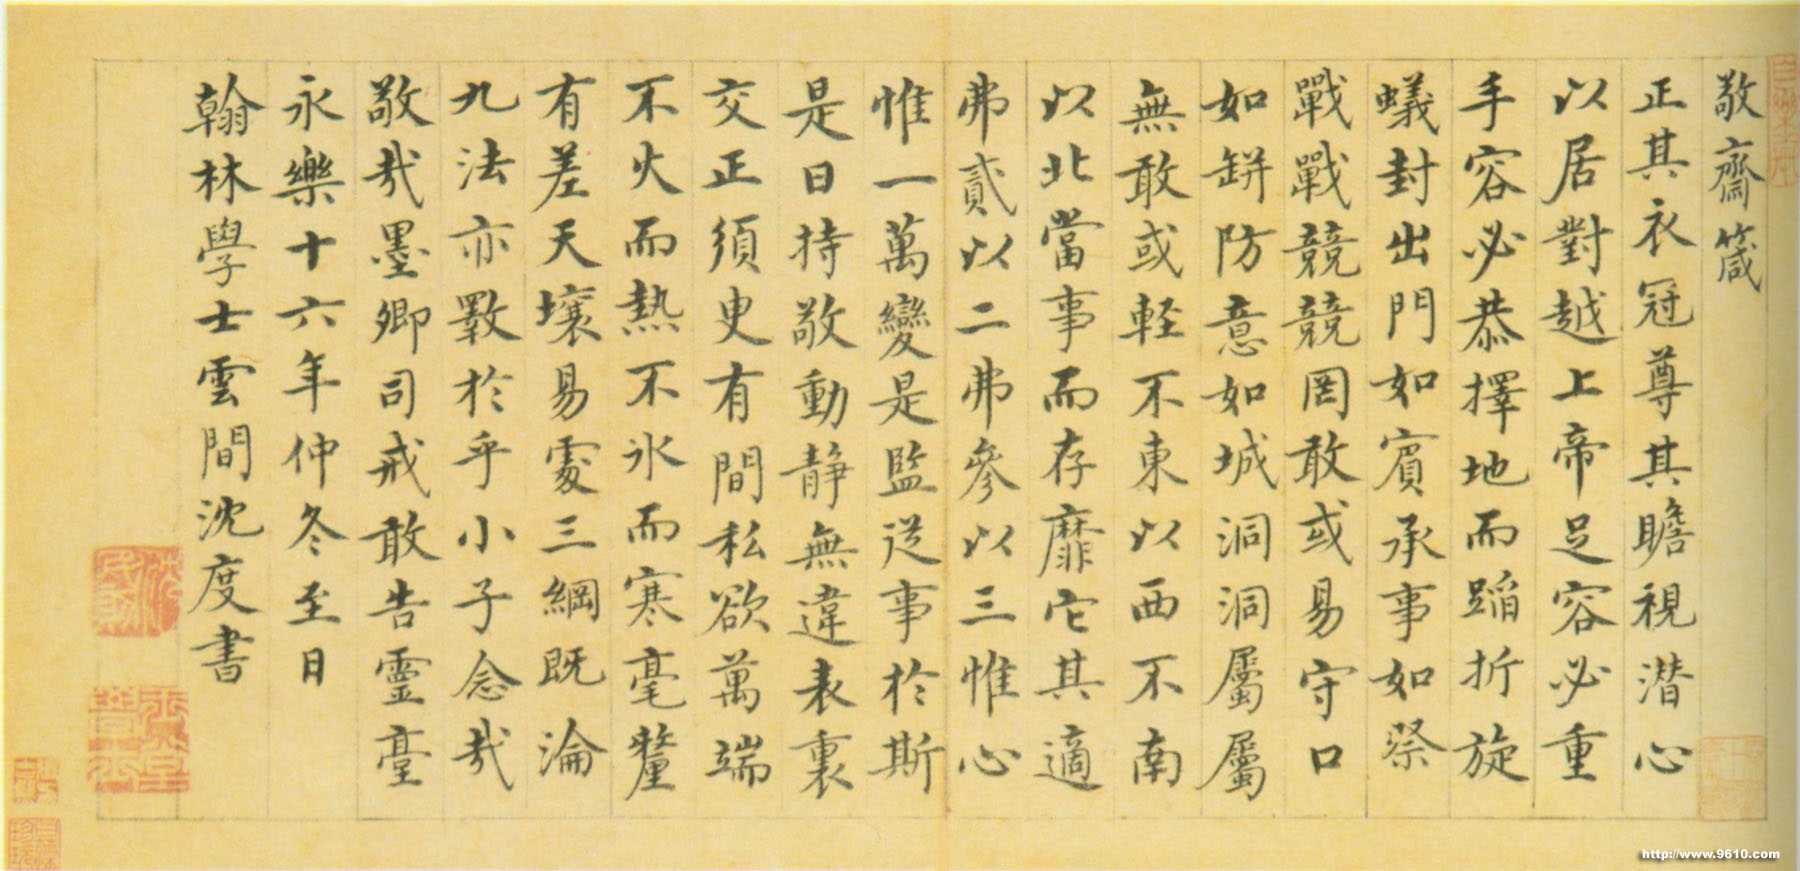 敬齋箴
正其衣冠尊其瞻視潛心
以居對越上帝足容必重
手容必恭擇地而蹈折旋
蟻封出門如賓承事如祭
戰戰競競罔敢或易守口
如缾防意如城洞洞屬屬
無敢或軽不東以西不南
以北當事而存靡它其適
弗貳以二弗參以三惟心
惟一萬變是監從事於斯
是曰持敬動静無違表裏
交正須臾有間私欲萬端
不火而熱不氷而寒毫釐
有差天壤易處三綱既淪
九法亦斁於乎小子念哉
敬哉墨卿司戒敢告靈臺
永樂十六年仲冬至日
翰林學士雲間沈度書
http://www.9610.com